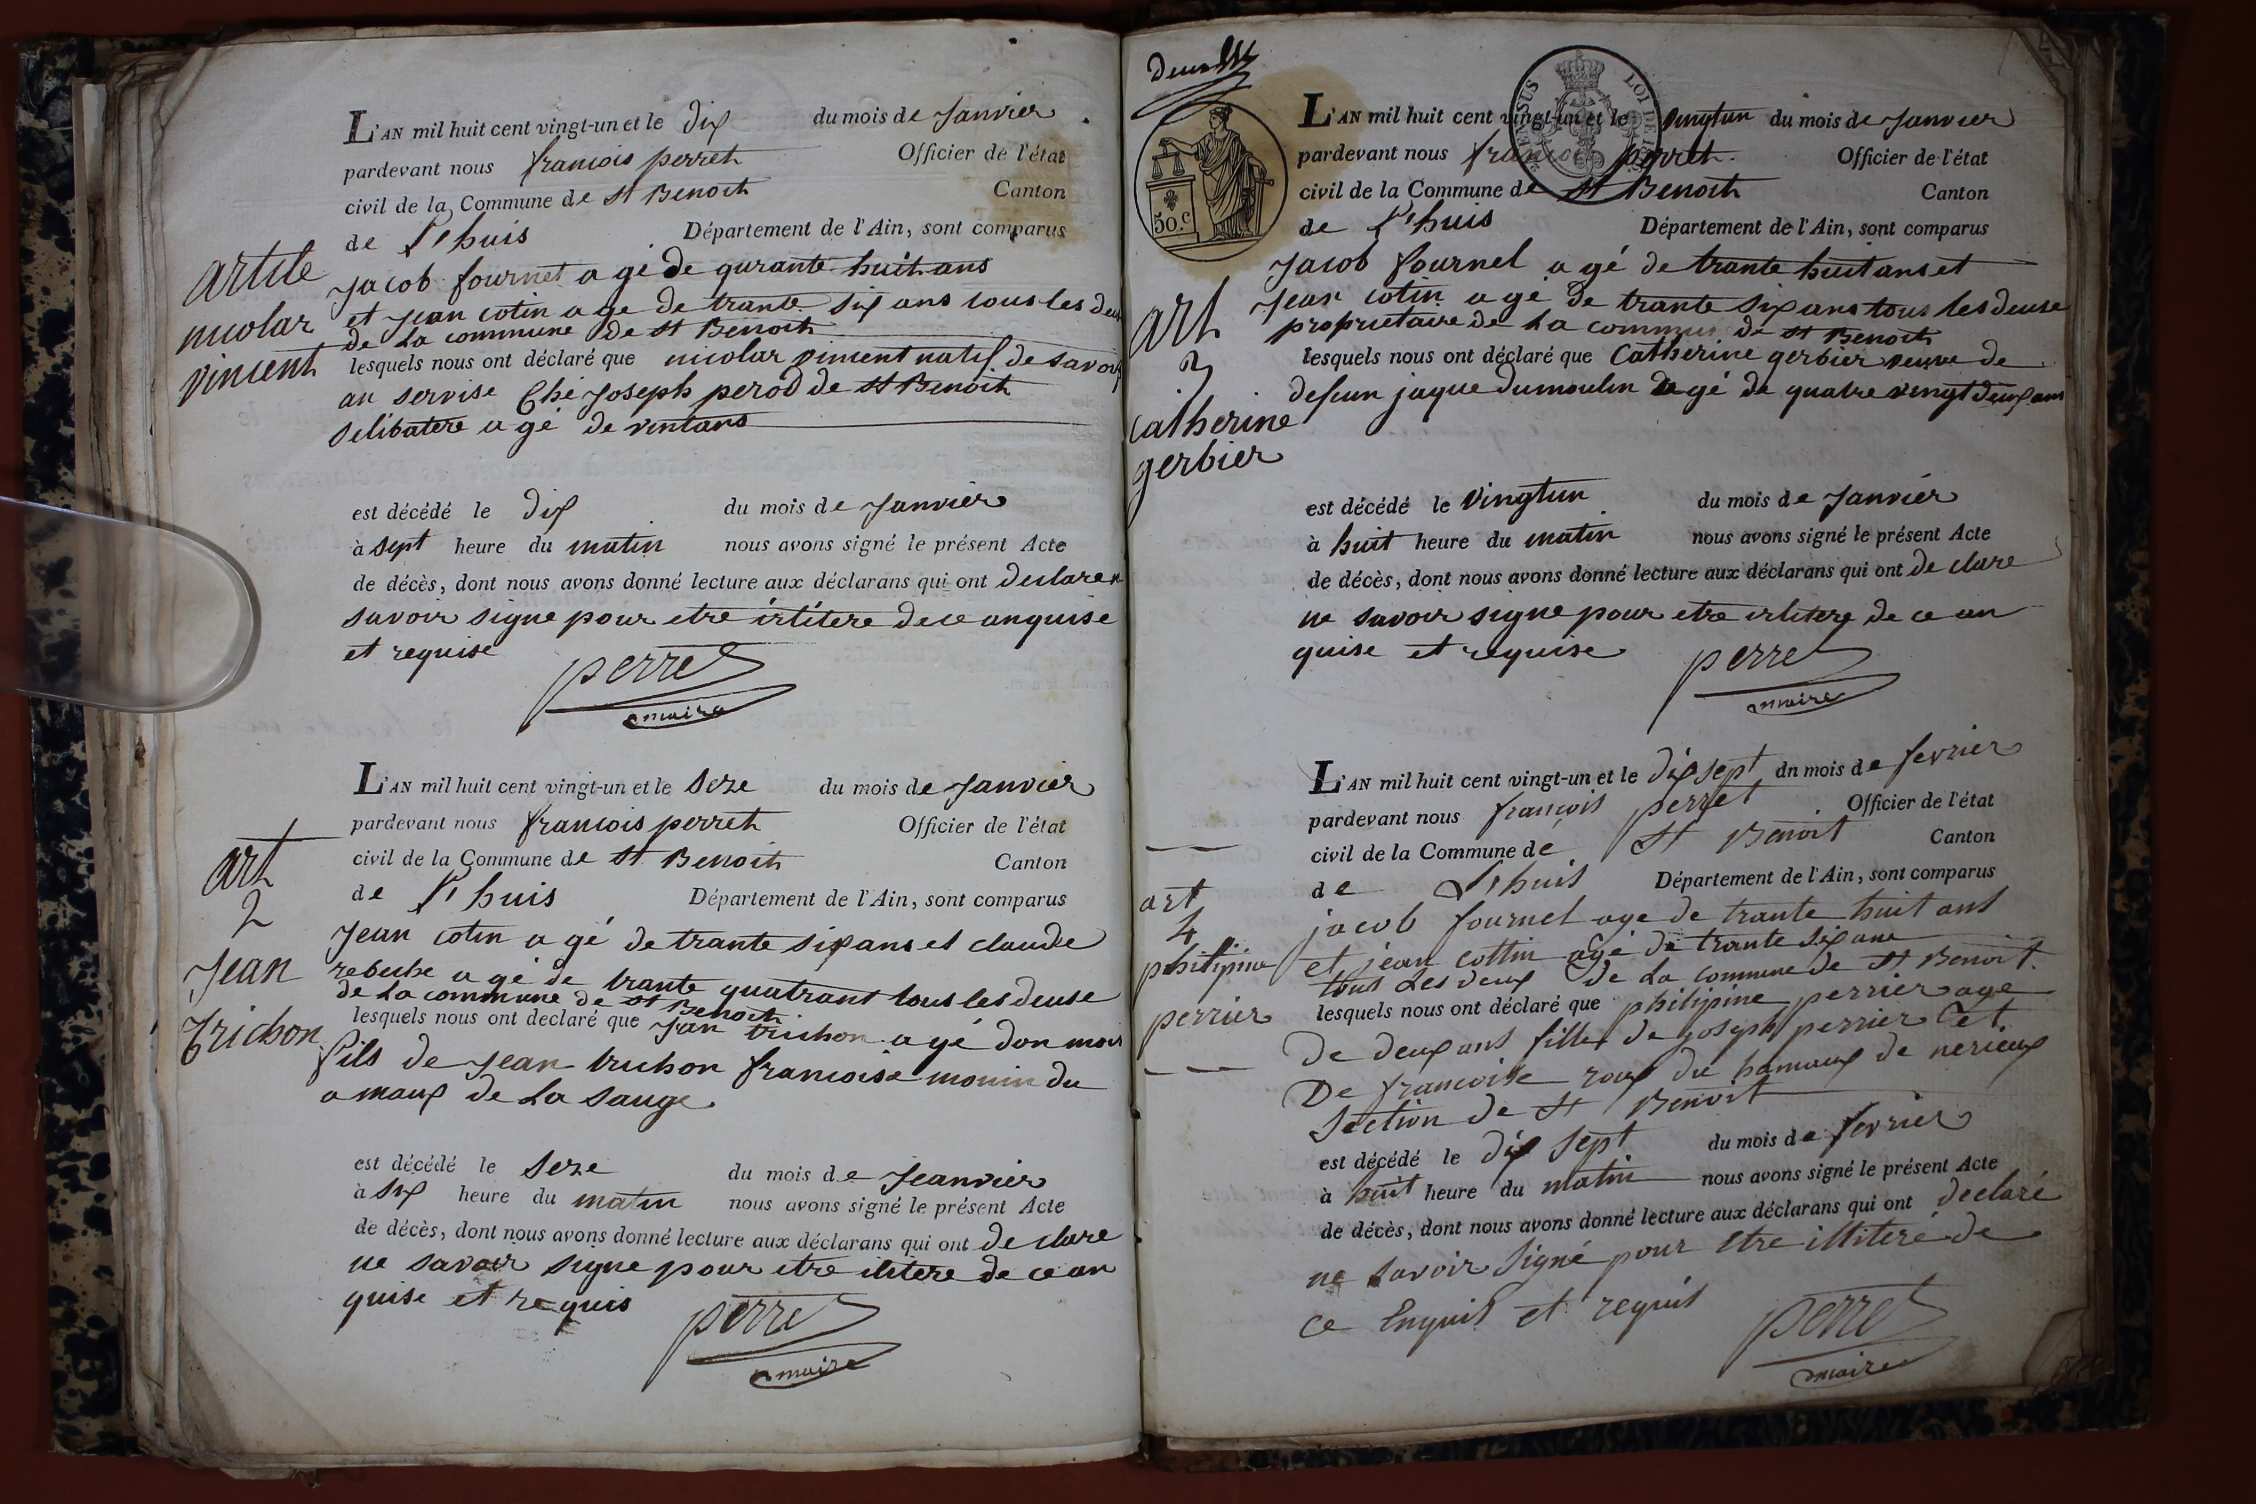 L'AN mil huit cent vingt-un et le dix du mois de Janvier
pardevant nous francois perret Officier de l'état
civil de la Commune de St Benoit Canton
de l'huis Département de l'Ain, sont comparus
article
nicolar
vincent
Jacob fournet a gé de qurante huit ans
et Jean cotin a ge de trante six ans tous les deux
de La commune de St Benoit
lesquels nous ont déclaré que nicolar vincent natif de savoi
an servise Ché Joseph perod de St Benoit
selibatere a gé de vintans
est décédé le dix du mois de Janvier
à sept heure du matin nous avons signé le présent Acte
de décès, dont nous avons donné lecture aux déclarans qui ont declare n
savoir signe pour etre irlitere de ce anquise
et requise
perret
maire
L'AN mil huit cent vingt-un et le seze du mois de Janvier
pardevant nous francois perret Officier de l'état
civil de la Commune de St Benoit Canton
de l'huis Département de l'Ain, sont comparus
art
2
Jean
trichon
Jean cotin a gé de trante six ans et claude
rebeche a gé de trante quatrans tous les deuse
de La commune de St Benoit
lesquels nous ont declaré que Jan trichon a gé don mois
fils de Jean trichon francoise monin du
a maux de La sauge
est décédé le seze du mois de Jeanvier
à six heure du matin nous avons signé le présent Acte
de décès, dont nous avons donné lecture aux déclarans qui ont de clare
ne savoir signe pour etre ilitere de ce an
quise et requis
perret
maire
50.c
LOI DE
L'AN mil huit cent vingt-un et le vingtun du mois de Janvier
pardevant nous francois perret Officier de l'état
civil de la Commune de St Benoit Canton
de l'huis Département de l'Ain, sont comparus
art
3
catherine
gerbier
Jacob fournel a gé de trante huit ans et
Jean cotin a gé de trante six ans tous les deuse
proprietaire de La commune de St Benoit
lesquels nous ont déclaré que Catherine gerbier veuve de
defeun jaque dumoulin a gé de quatre vingt deux ans
est décédé le vingtun du mois de Janvier
à huit heure du matin nous avons signé le présent Acte
de décès, dont nous avons donné lecture aux déclarans qui ont de clare
ne savoir signe pour etre irlitere de ce an
quise et requise
perret
maire
L'AN mil huit cent vingt-un et le dix sept dn mois de fevrier
pardevant nous françois perret Officier de l'état
civil de la Commune de St Benoit Canton
de L'huis Département de l'Ain, sont comparus
art
4
philipine
perrier
jacob fournel age de trante huit ans
et jean cottin agé de trante six ans
tous Les deux de La commune de St Benoit
lesquels nous ont déclaré que philipine perrier age
De deux ans fille de joseph perrier Cet
De francoise roux du hamaux de nerieux
Section de St Benoit
est décédé le dix sept du mois de fevrier
à huit heure du matin nous avons signé le présent Acte
de décès, dont nous avons donné lecture aux déclarans qui ont declaré
ne savoir signé pour etre illiteré de
ce Enquis et requis
perret
maire